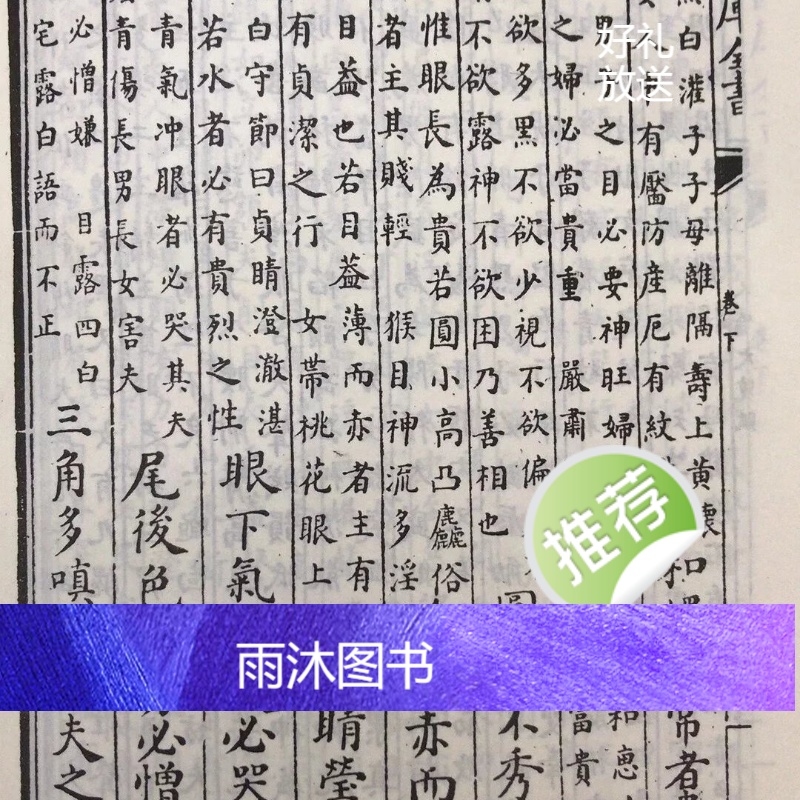 庫全書
卷下
白灌子子母離隔壽上黃
有靨防產厄有紋
常者
之目必要神旺婦
和惠
之婦必當貴重 嚴肅
富貴
欲多黑不欲少視不欲偏
不欲露神不欲困乃善相也
不秀
惟眼長為貴若圓小高凸麤俗
者主其賤輕 猴目神流多淫
赤而
目益也若目益薄而赤者主有
有貞潔之行 女帶桃花眼上
睛瑩
白守節曰貞睛澄澈湛
若水者必有貴烈之性
眼下氣
必哭
青氣冲眼者必哭其夫
青傷長男長女害夫
尾後色
必憎
必憎嫌 目露四白
宅露白語而不正
三角多嗔
夫之
好礼
放送
推荐
雨沐图书